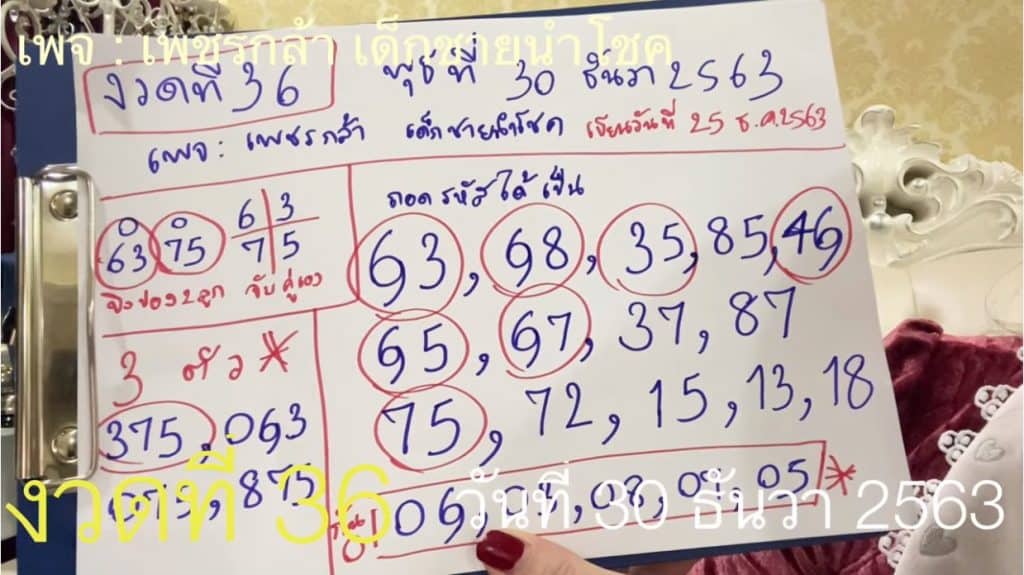 เพจ : เพชรกล้า เด็กชายนำโชค
งวดที่ 36 พุธที่ 30 ธันวา 2563
เพจ : เพชรกล้า เด็กชายนำโชค เขียนวันที่ 25 ธ.ค.2563
63 75
6 3
7 5
ปิงปอง 2 ลูก จับคู่เอง
ถอดรหัสได้เป็น
63, 68, 35, 85, 46
65, 67, 37, 87
75, 72, 15, 13, 18
3 ตัว
375, 063
875
06, 08, 05
งวดที่ 36 วันที่ 30 ธันวา 2563